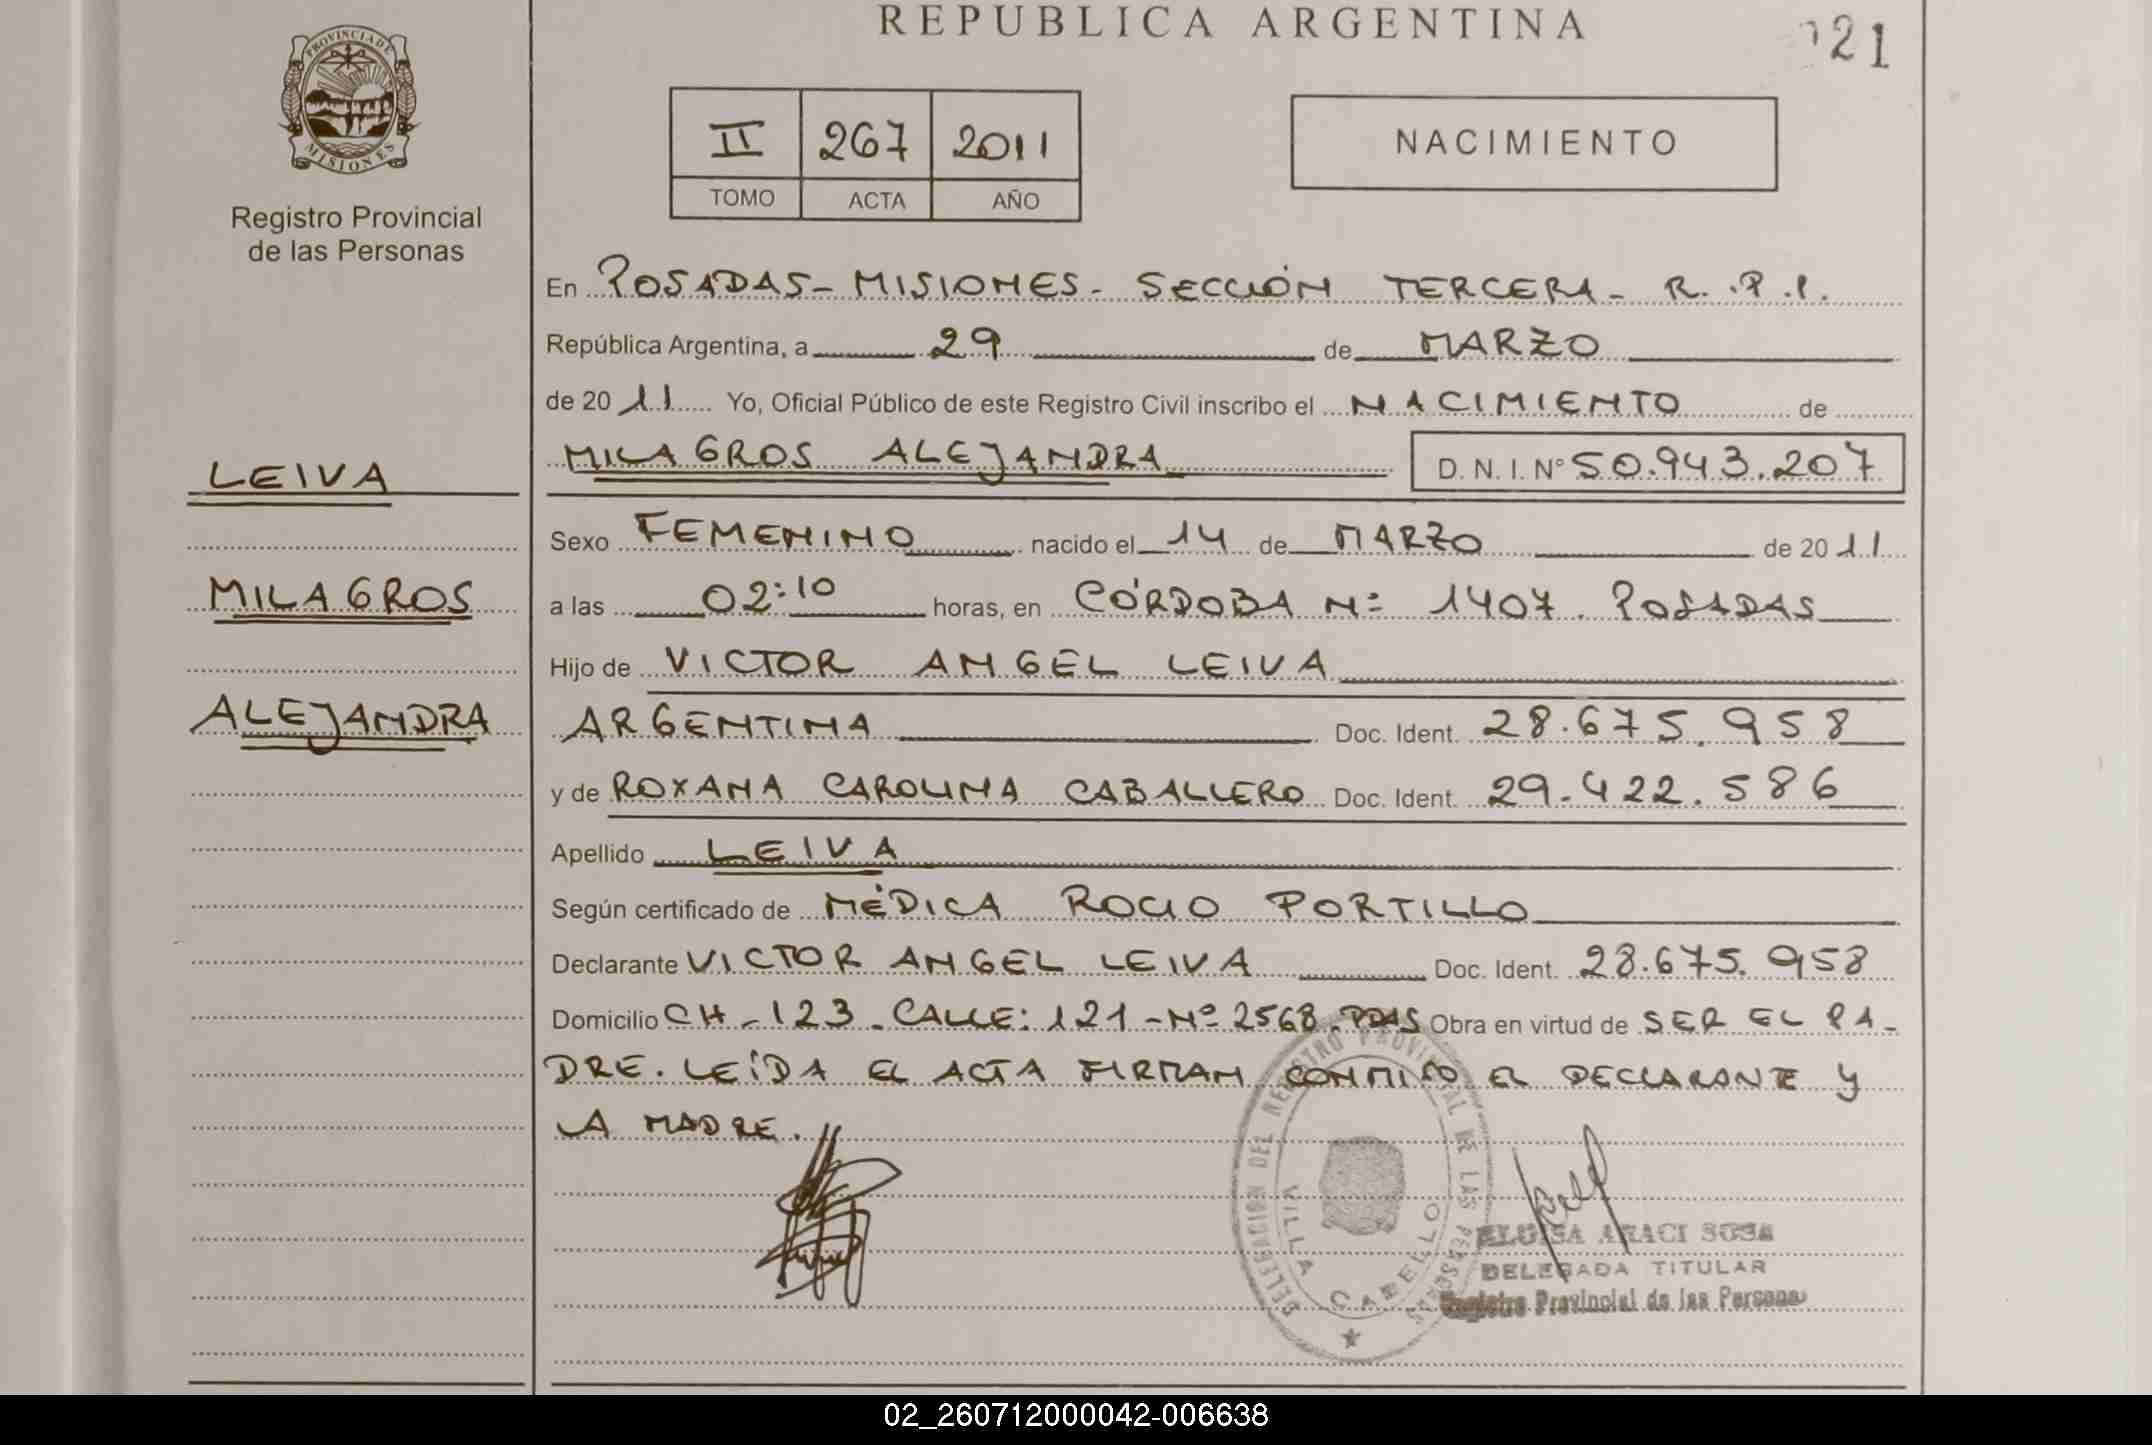 REPUBLICA ARGENTINA
21
PROVINCIA DE MISIONES
Registro Provincial
de las Personas
II 267 2011
TOMO ACTA AÑO
NACIMIENTO
En POSADAS - MISIONES - SECCIÓN TERCERA - R. P. P.
República Argentina, a 29 de MARZO
de 2011 Yo, Oficial Público de este Registro Civil inscribo el NACIMIENTO de
MILAGROS ALEJANDRA D. N. I. N° 50.943.207
LEIVA
MILAGROS
ALEJANDRA
Sexo FEMENINO nacido el 14 de MARZO de 2011
a las 02:10 horas, en CÓRDOBA Nº 1407. POSADAS
Hijo de VICTOR ANGEL LEIVA
ARGENTINA Doc. Ident. 28.675.958
y de ROXANA CAROLINA CABALLERO Doc. Ident. 29.422.586
Apellido LEIVA
Según certificado de MÉDICA ROCIO PORTILLO
Declarante VICTOR ANGEL LEIVA Doc. Ident. 28.675.958
Domicilio CH - 123 - CALLE: 121 - Nº 2568. PDAS Obra en virtud de SER EL PA-
DRE. LEÍDA EL ACTA FIRMAN CONMIGO EL DECLARANTE Y
LA MADRE.
DELEGACION DEL REGISTRO PROVINCIAL DE LAS PERSONAS
VILLA CABELLO
ELOISA ARACI SOSA
DELEGADA TITULAR
Registro Provincial de las Personas
02_260712000042-006638